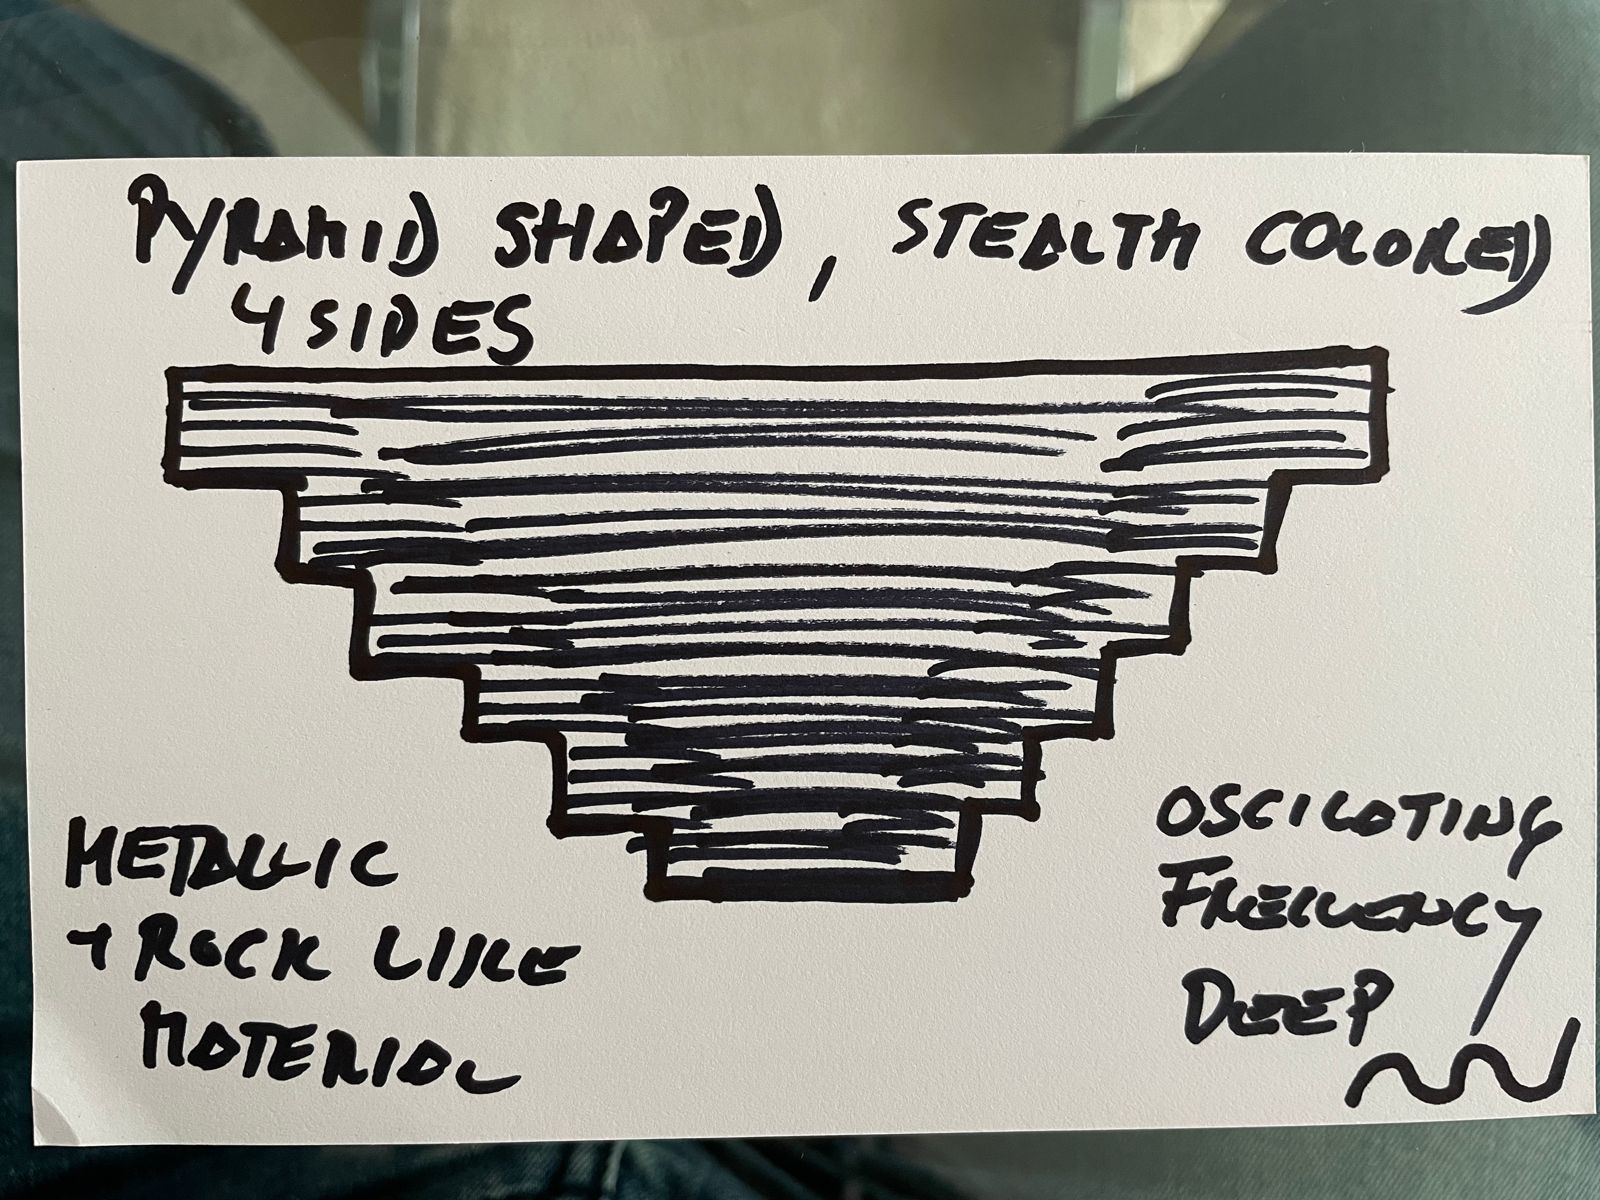 PYRAMID SHAPED, STEALTH COLORED
4 SIDES
METALLIC
+ ROCK LIKE
MATERIAL
OSCILOTING
FREQUENCY
DEEP